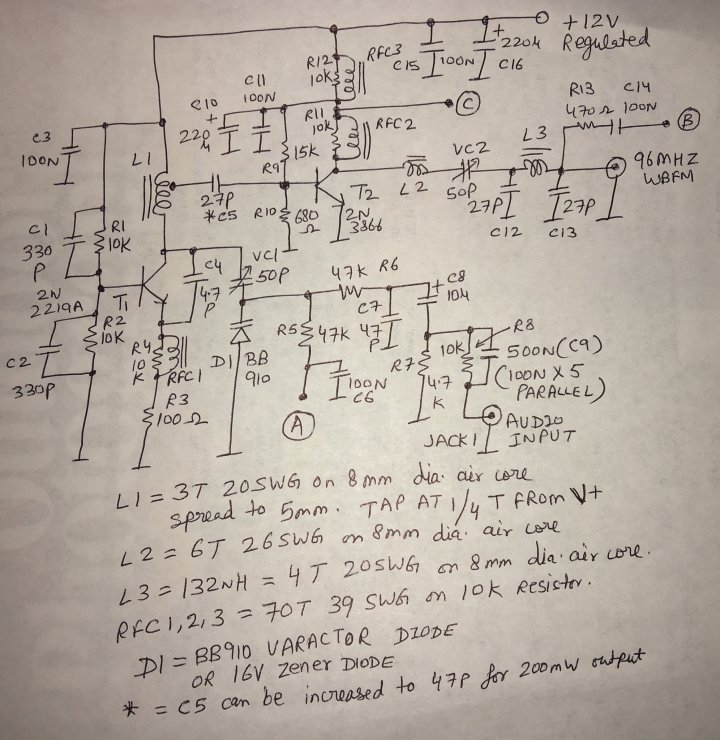 +12V
Regulated
R12
10K
RFC3
C15
100N
+
220µ
C16
C11
100N
C10
+
220
µ
R11
10K
RFC2
C
R13
470Ω
C14
100N
B
C3
100N
L1
R9
15K
VC2
50P
L3
96MHZ
WBFM
27P
*C5
R10
680
Ω
T2
2N
3866
L2
27P
C12
27P
C13
C1
330
P
R1
10K
C4
4.7
P
VC1
50P
47K R6
+ C8
104
2N
2219A
T1
R2
10K
R5
47K
C7
47
P
R8
10K
500N(C9)
(100N X 5
PARALLEL)
C2
330P
R4
10
K
RFC1
D1
BB
910
R7
4.7
K
100N
C6
R3
100Ω
A
JACK1
AUDIO
INPUT
L1 = 3T 20SWG on 8mm dia. air core
spread to 5mm. TAP AT 1/4 T FROM V+
L2 = 6T 26SWG on 8mm dia. air core
L3 = 132NH = 4T 20SWG on 8mm dia. air core.
RFC1,2,3 = 70T 39 SWG on 10K Resistor.
D1 = BB910 VARACTOR DIODE
OR 16V Zener DIODE
* = C5 can be increased to 47P for 200mw output